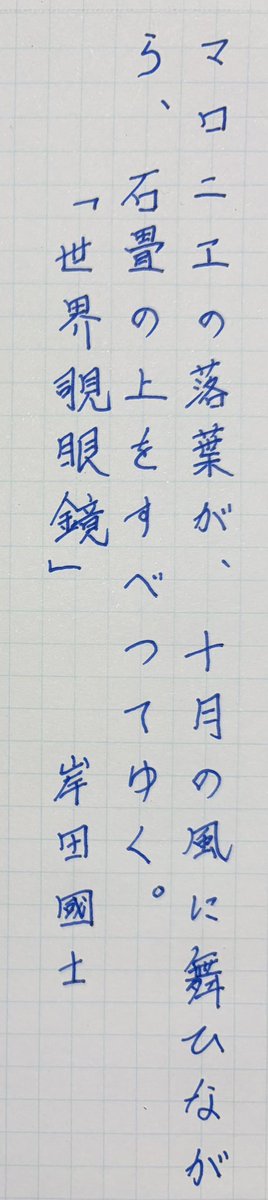 マロニエの落葉が、十月の風に舞ひなが
ら、石畳の上をすべつてゆく。
「世界覗眼鏡」　岸田國士